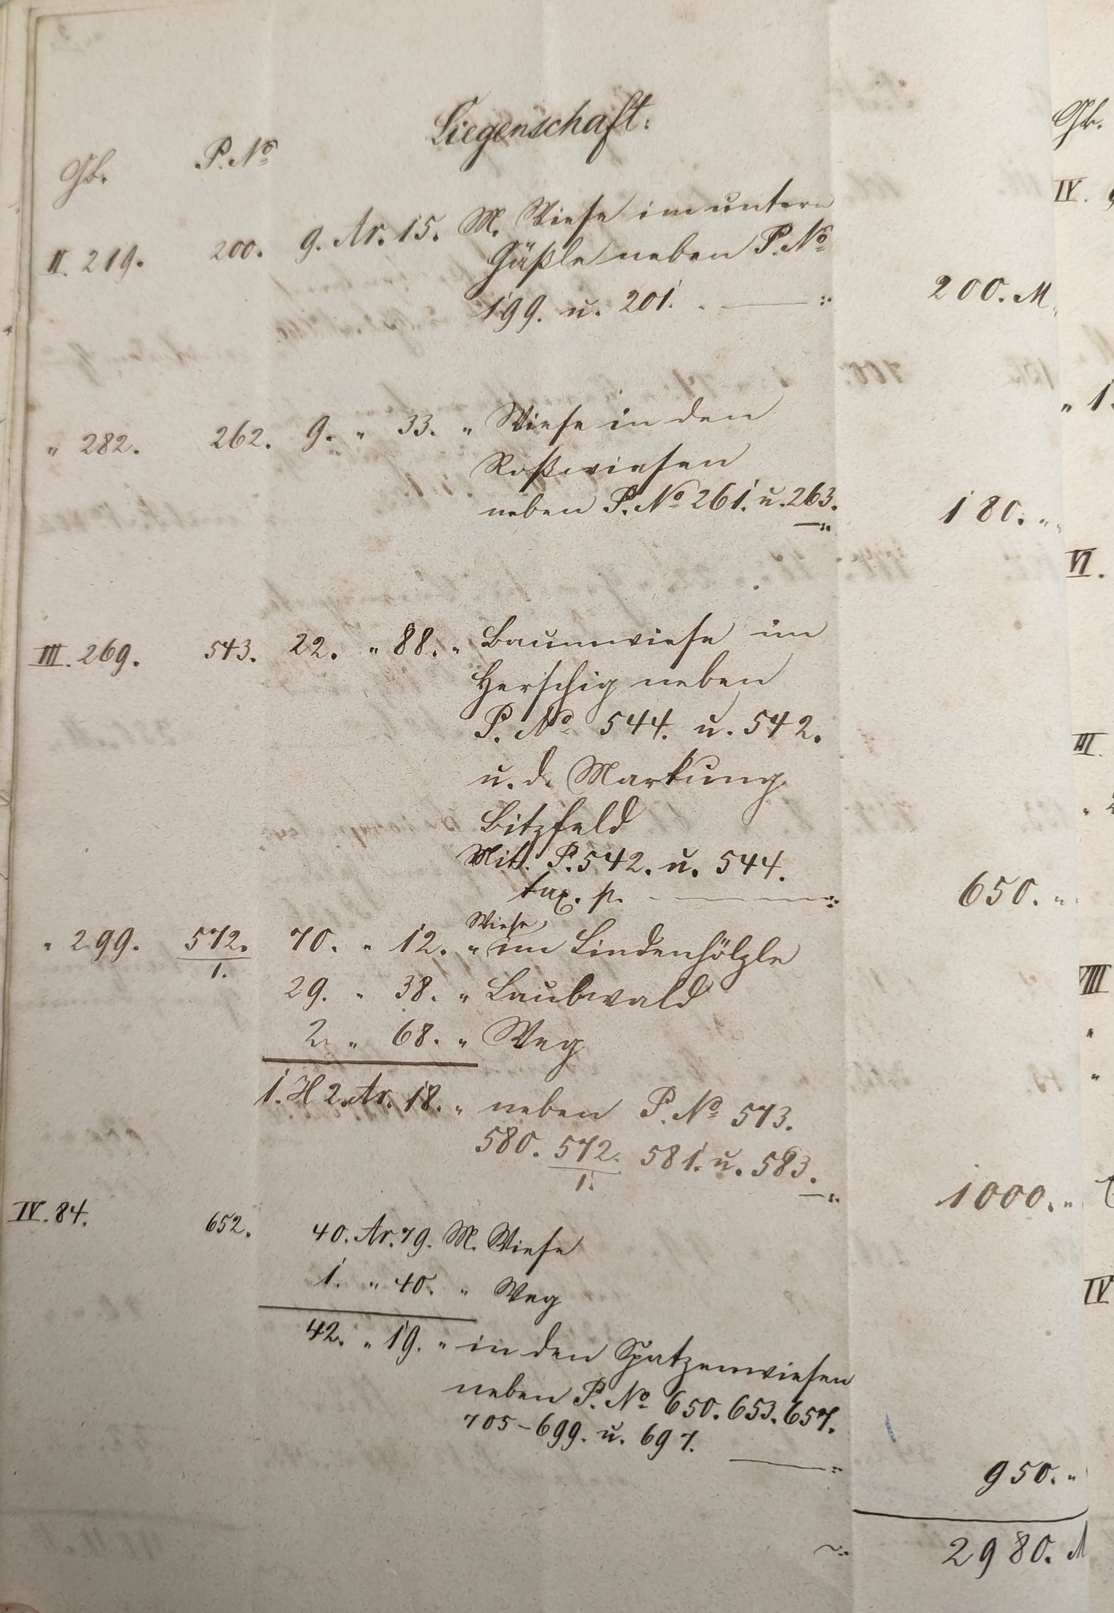 Liegenschaft:
Gb. P. No
II. 219. 200. 9. Ar. 15. M. Wiese im untern
Gäßle neben P. No
199. u. 201. 200. M.
" 282. 262. 9. " 33. " Wiese in den
Roßwiesen
neben P. No 261. u. 263. 180. "
III. 269. 543. 22. " 88. " Baumwiese im
Herschig neben
P. No 544. u. 542.
u. d. Markung
Bitzfeld
Mit P. 542. u. 544.
tax. p. 650. "
" 299. 572./1. 70. " 12. " Wiese im Lindenhölzle
29. " 38. " Laubwald
2 " 68. " Weg
1. H 2. Ar. 18. " neben P. No 573.
580. 572./1. 581. u. 583. 1000. "
IV. 84. 652. 40. Ar. 79. M. Wiese
1. " 40. " Weg
42. " 19. " in den Spatzenwiesen
neben P. No 650. 653. 657.
705-699. u. 697. 950. "
2980. M
Gb.
IV.
" 1
VI.
III.
" 2
VIII
"
"
IV